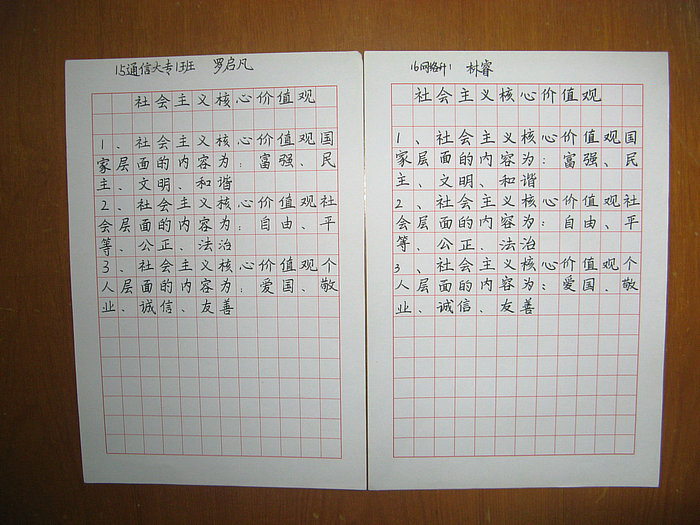 15通信大专1班 罗启凡
社会主义核心价值观
1、社会主义核心价值观国
家层面的内容为:富强、民
主、文明、和谐
2、社会主义核心价值观社
会层面的内容为:自由、平
等、公正、法治
3、社会主义核心价值观个
人层面的内容为:爱国、敬
业、诚信、友善
16网络升1 林睿
社会主义核心价值观
1、社会主义核心价值观国
家层面的内容为:富强、民
主、文明、和谐
2、社会主义核心价值观社
会层面的内容为:自由、平
等、公正、法治
3、社会主义核心价值观个
人层面的内容为:爱国、敬
业、诚信、友善